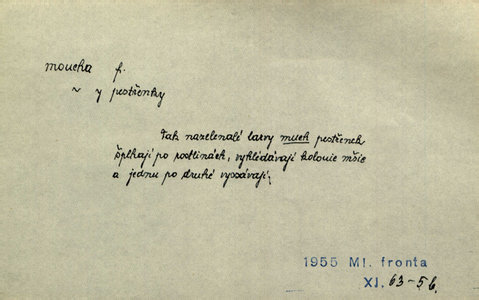 moucha f.
~ y pestřenky
Tak nazelenalé larvy much pestřenek
šplhají po rostlinách, vyhledávají kolonie mšic
a jednu po druhé vysávají;
1955 Ml. fronta
XI. 63-56.